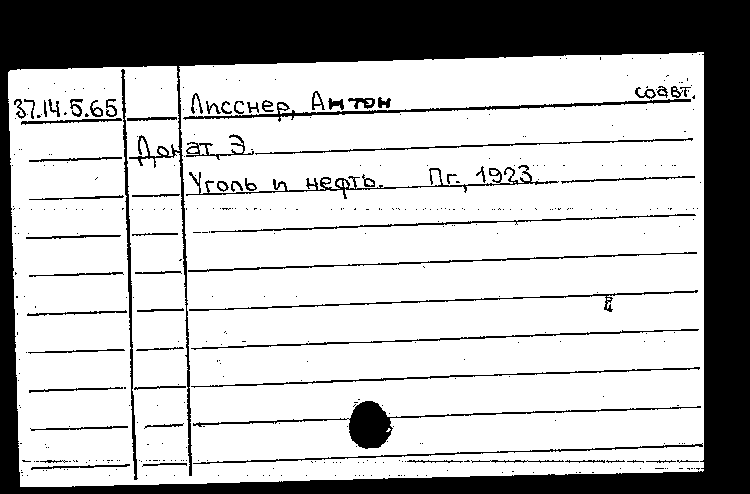 37.14.5.65 Лисснер, Антон соавт.
Донат, Э.
Уголь и нефть. Пг., 1923.